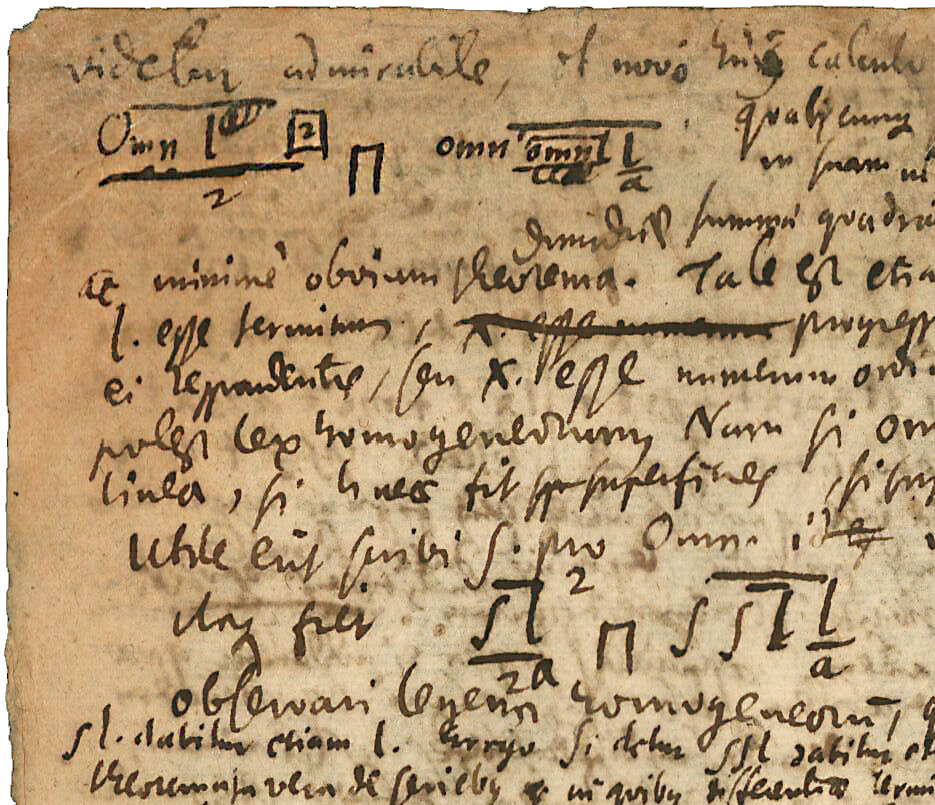 videtur admirabile, et novo huic calculo
Omn l 2 ⊓ omn omn l l/a
2
qualiscunq
in suam
summa quadra
ac minimè obvium theorema. Tale est etia
l. esse terminum, x. esse numerum progress
ei respondentis, seu x. esse numerum ordi
potest lex homogeneorum Nam si om
linea, si linea fit superficies, si su
Utile erit scribi ∫. pro Omn.
Itaq fiet ∫l 2 / 2a ⊓ ∫ ∫l l/a
observari leges homogeneorū,
∫l. dabitur etiam l. Ergo si detur ∫∫l dabitur et
theoremata vera de seriebus in quibus differentia termi